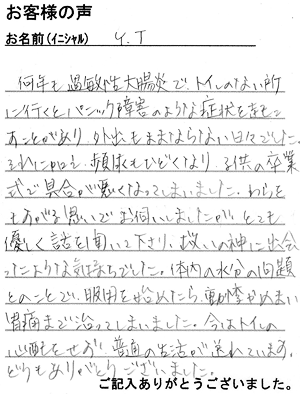 お客様の声
お名前(イニシャル) Y.T
何年も過敏性大腸炎で、トイレのない所
に行くとパニック障害のような症状をきたす
ことがあり、外出もままならない日々でした。
それに加え、頻尿もひどくなり、子供の卒業
式で具合が悪くなってしまいました。わらを
もつかむ思いでお伺いしましたが、とても
優しく話を聞いて下さり、救いの神に出会
ったような気持ちでした。体内の水分の問題
とのことで、服用を始めたら、動悸やめまい
胃痛まで治ってしまいました。今はトイレの
心配もせず、普通の生活が送れています。
どうもありがとうございました。
ご記入ありがとうございました。